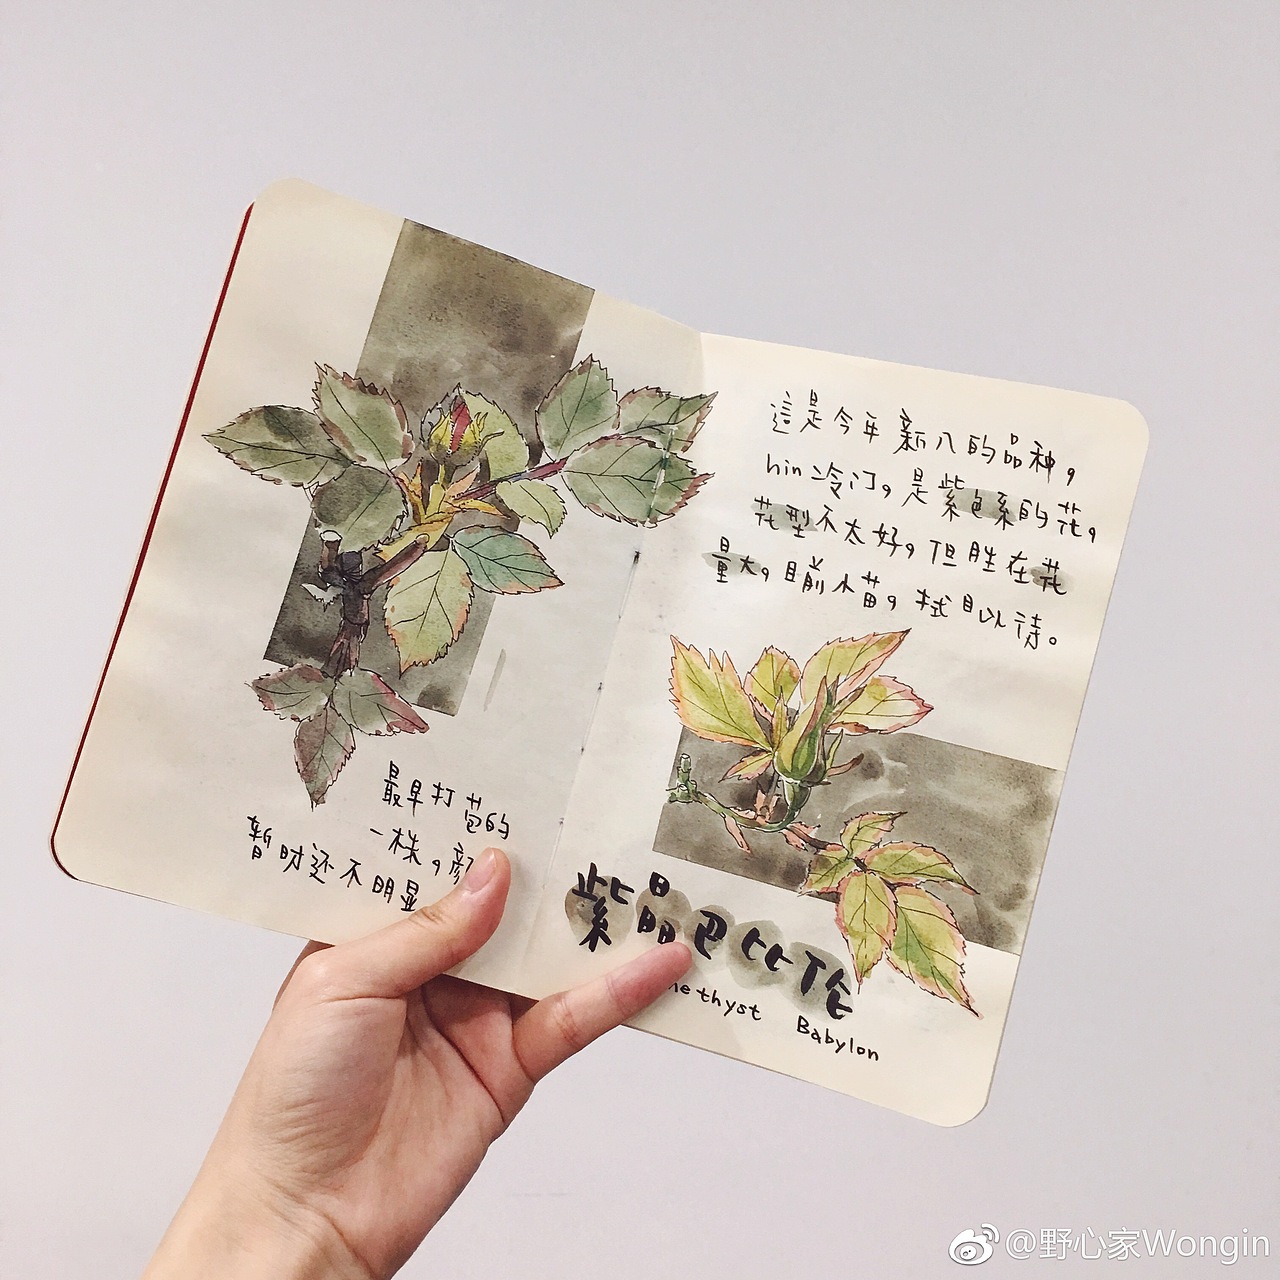 最早打苞的
一株，顏
暂时还不明显
這是今年新入的品种，
hin冷门。是紫色系的花。
花型不太好，但胜在花
量大。目前小苗，拭目以待。
紫晶巴比伦
methyst Babylon
@野心家Wongin